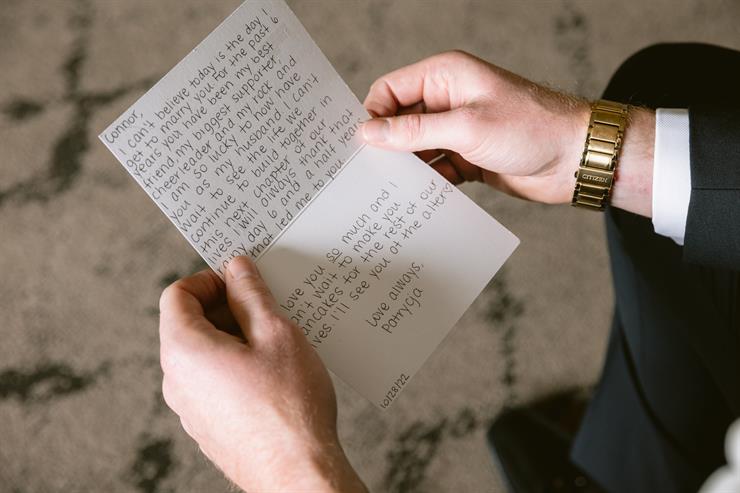 Connor,
I can't believe today is the day I
get to marry you. For the past 6
years you have been my best
friend, my biggest supporter,
cheerleader and my rock and
am so lucky to now have
you as my husband! I can't
wait to see the life we
continue to build together in
this next chapter of our
lives. I will always thank that
day 6 and a half years
that led me to you
love you so much and I
can't wait to make you
pancakes for the rest of our
lives I'll see you at the alter♡
Love always,
Patrycja
10/28/22
CITIZEN